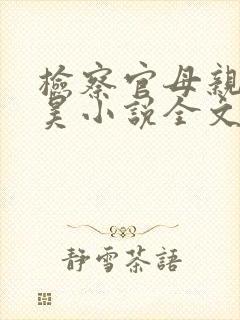 檢察官母親
昊小說全文
靜雪茶語